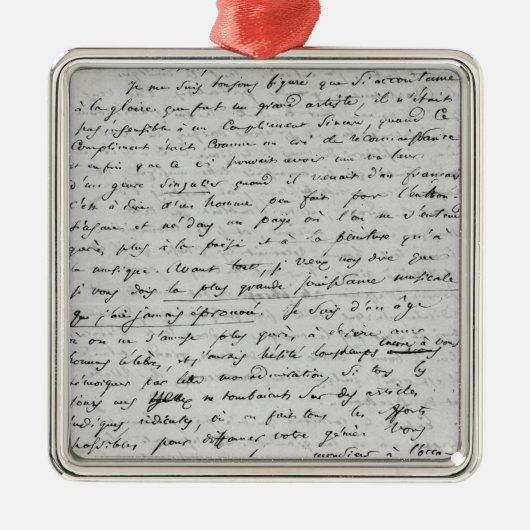 Je me suis toujours figuré que si accoutumé
à la gloire que fut un grand artiste, il n'était
pas insensible à un compliment sincère, quand ce
compliment était comme un cri de reconnaissance
et enfin que ce cri pouvait avoir une valeur
d'un genre singulier quand il venait d'un français
c'est à dire d'un homme peu fait pour l'enthou-
siasme et né dans un pays où l'on ne s'entend
guères plus à la poésie et à la peinture qu'à
la musique. Avant tout, je veux vous dire que
je vous dois la plus grande jouissance musicale
que j'aie jamais éprouvée. Je suis d'un âge
où on ne s'amuse plus guères à écrire aux
hommes célèbres, et j'aurais hésité longtemps encore à vous
témoigner par lettre mon admiration, si tous les
jours mes yeux ne tombaient sur des articles
indignes, ridicules, où on fait tous les efforts
possibles pour diffamer votre génie. Vous
monsieur à l'occa